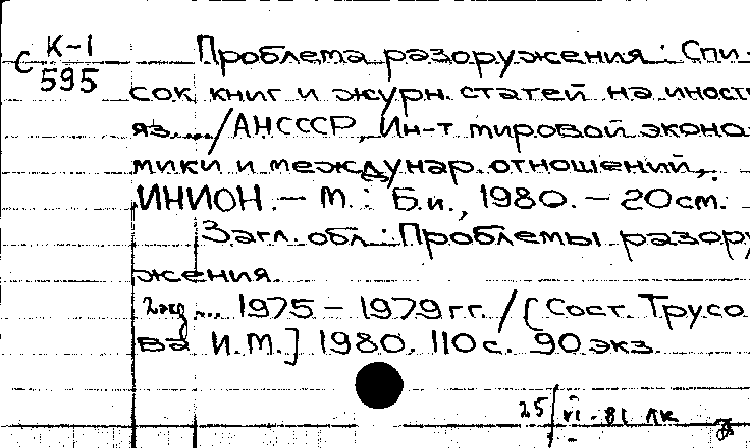 С К-1
595
Проблема разоружения: Спи-
сок книг и журн. статей на иност
яз..../АНСССР, Ин-т мировой эконо
мики и междунар. отношений,
ИНИОН. — М.: Б.и., 1980. — 20 см.
Загл. обл.: Проблемы разору
жения.
... 1975 – 1979 гг. / [Сост. Трусо
ва И.М.] 1980. 110 с. 90 экз.
25/VI-81 ЛК